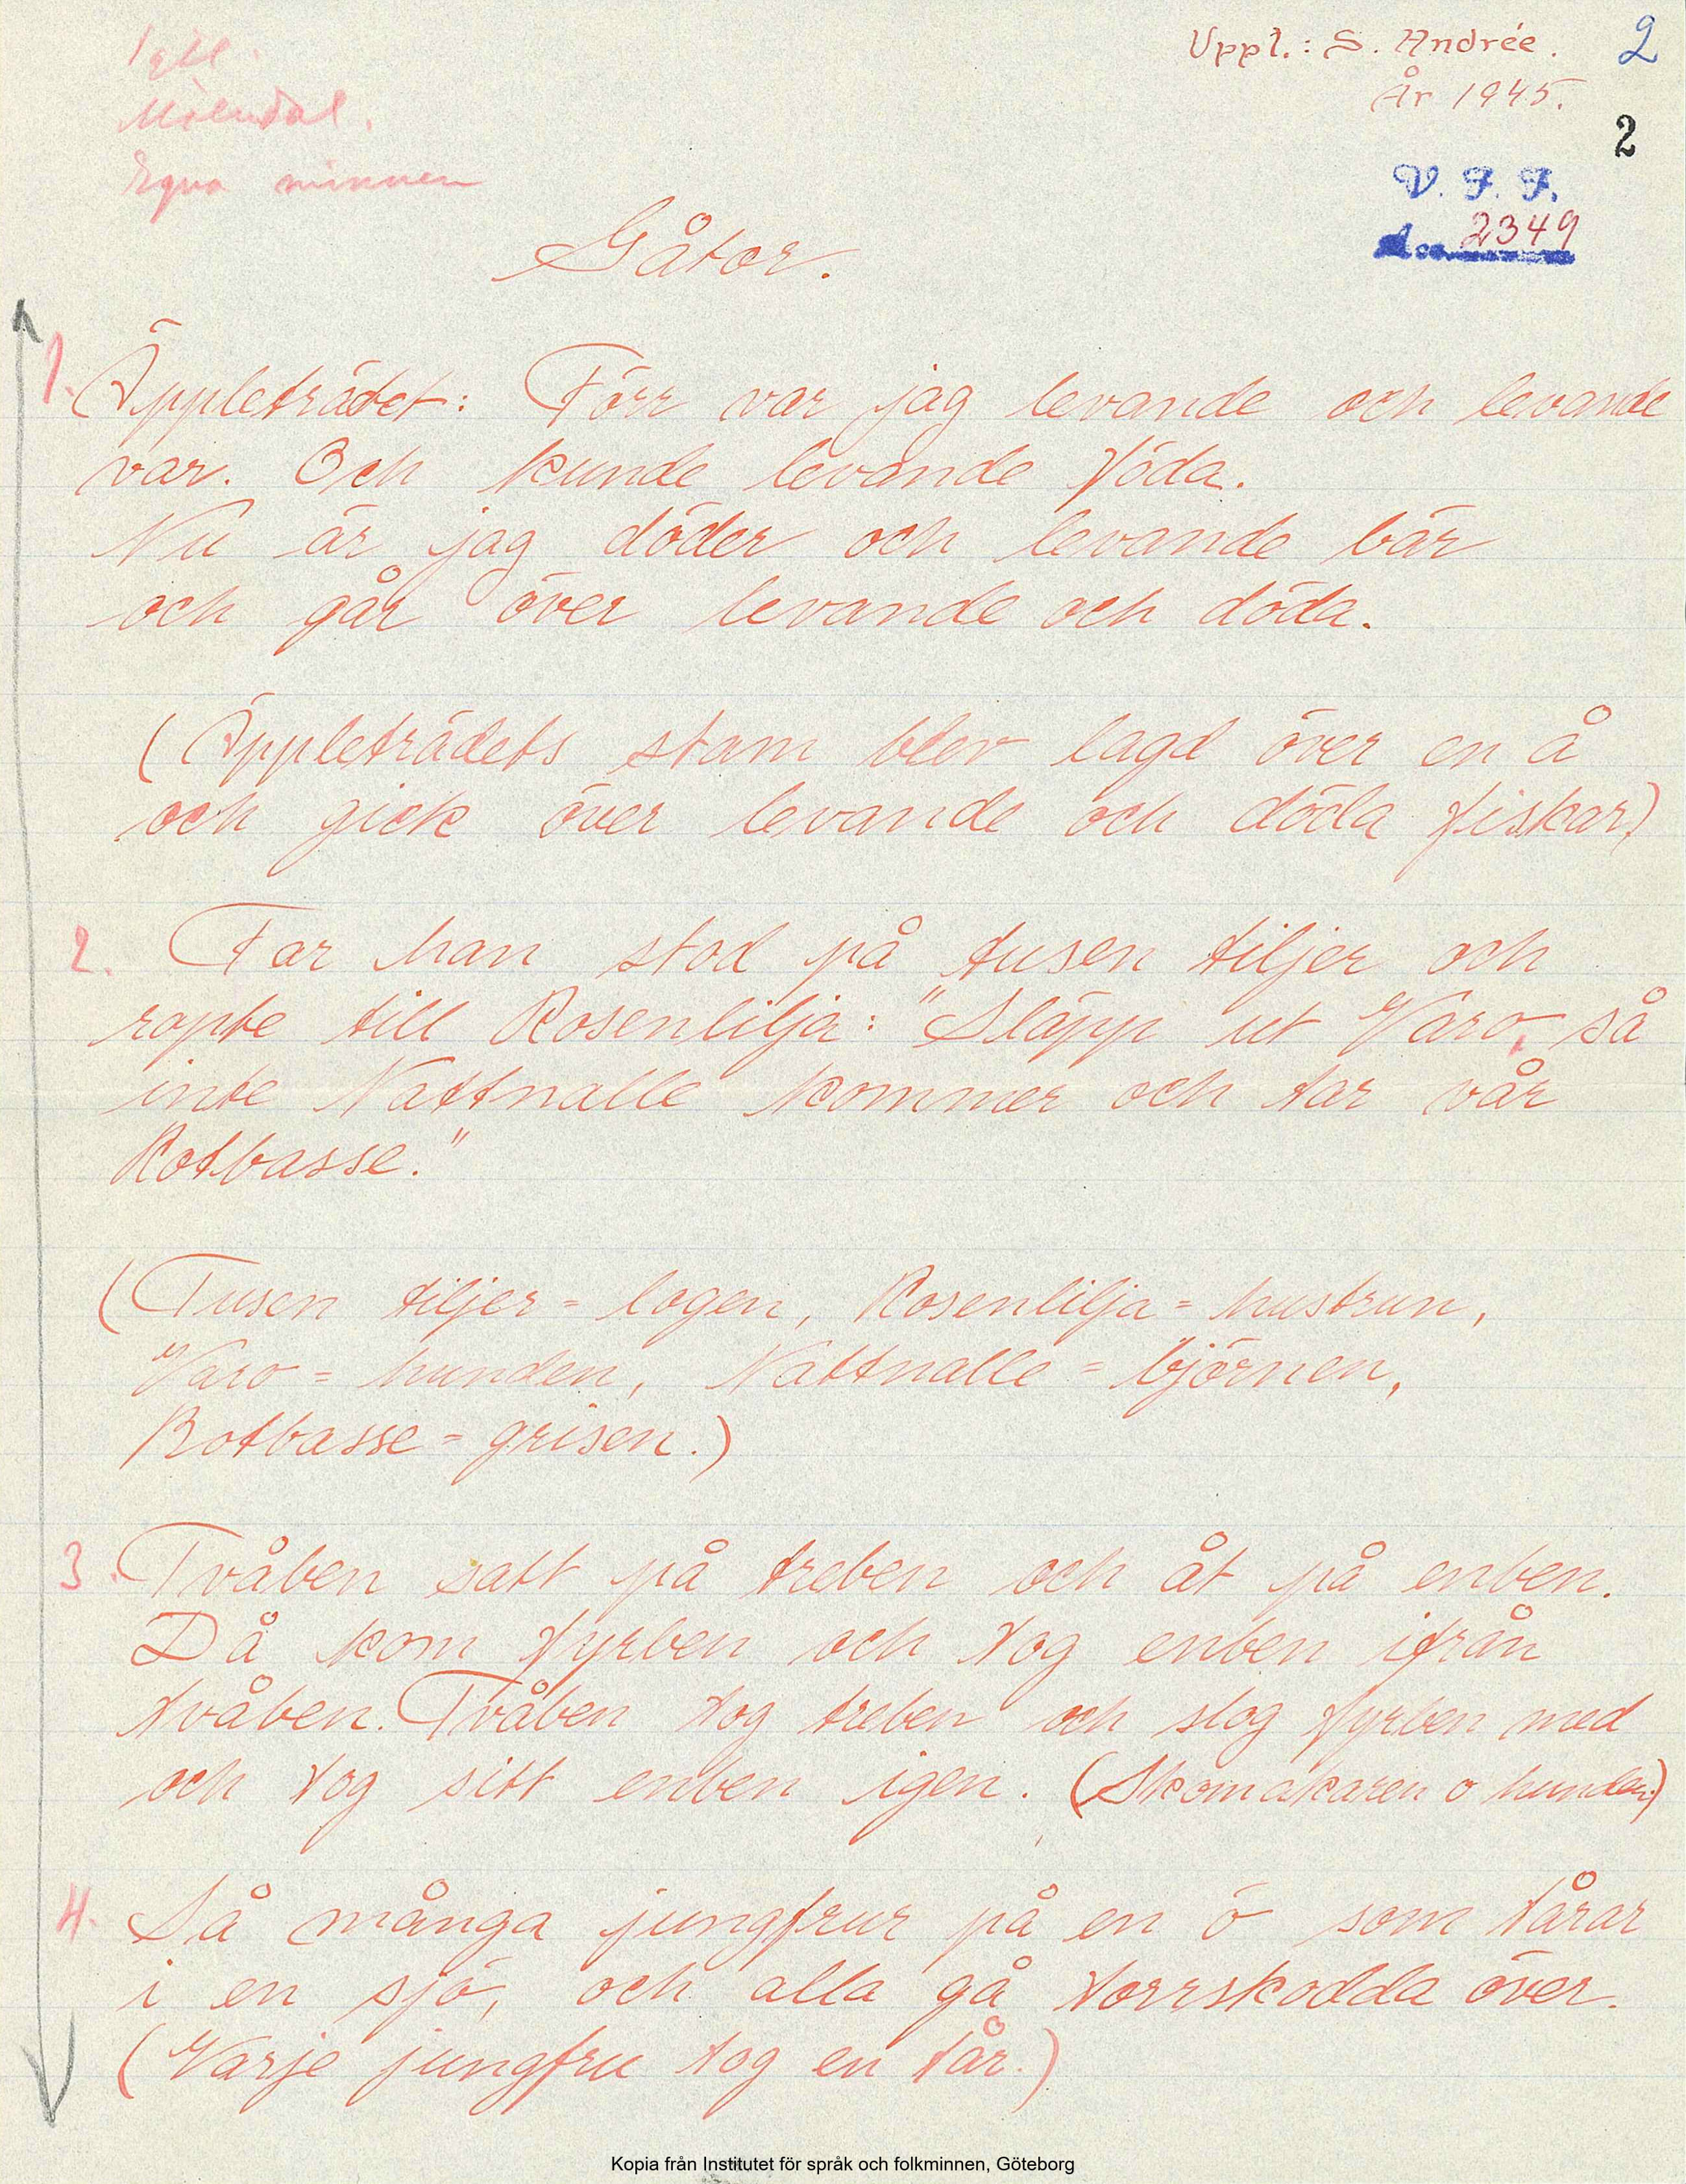 Uppl.: S. Andrée. 2
År 1945.
2
Mölndal.
Egna minnen
V. F. F.
2349
Gåtor.
1. Äppleträdet: Förr var jag levande och levande
var. Och kunde levande föda.
Nu är jag döder och levande bär
och går över levande och döda.
(Äppleträdets stam blev lagd över en å
och gick över levande och döda fiskar)
2. Far han stod på tusen tiljer och
ropte till Rosenlilja: "Släpp ut Varo, så
inte Nattnalle kommer och tar vår
Rotbasse."
(Tusen tiljer = logen, Rosenlilja = hustrun,
Varo = hunden, Nattnalle = björnen,
Rotbasse = grisen.)
3. Tvåben satt på treben och åt på enben.
Då kom fyrben och tog enben ifrån
tvåben. Tvåben tog treben och slog fyrben med
och tog sitt enben igen. (Skomakaren o hunden)
4. Så många jungfrur på en ö som tårar
i en sjö, och alla gå torrskodda över.
(Varje jungfru tog en tår.)
Kopia från Institutet för språk och folkminnen, Göteborg